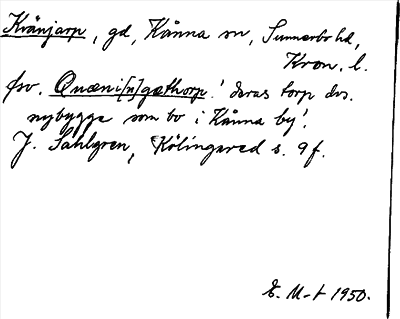 Kvänjarp, gd, Kånna sn, Sunnerbo hd,
Kron. l.
fsv. Quæni[n]gæthorp 'deras torp dvs.
nybygge som bo i Kånna by'.
J. Sahlgren, Kölingared s. 9 f.
E. M-t 1950.